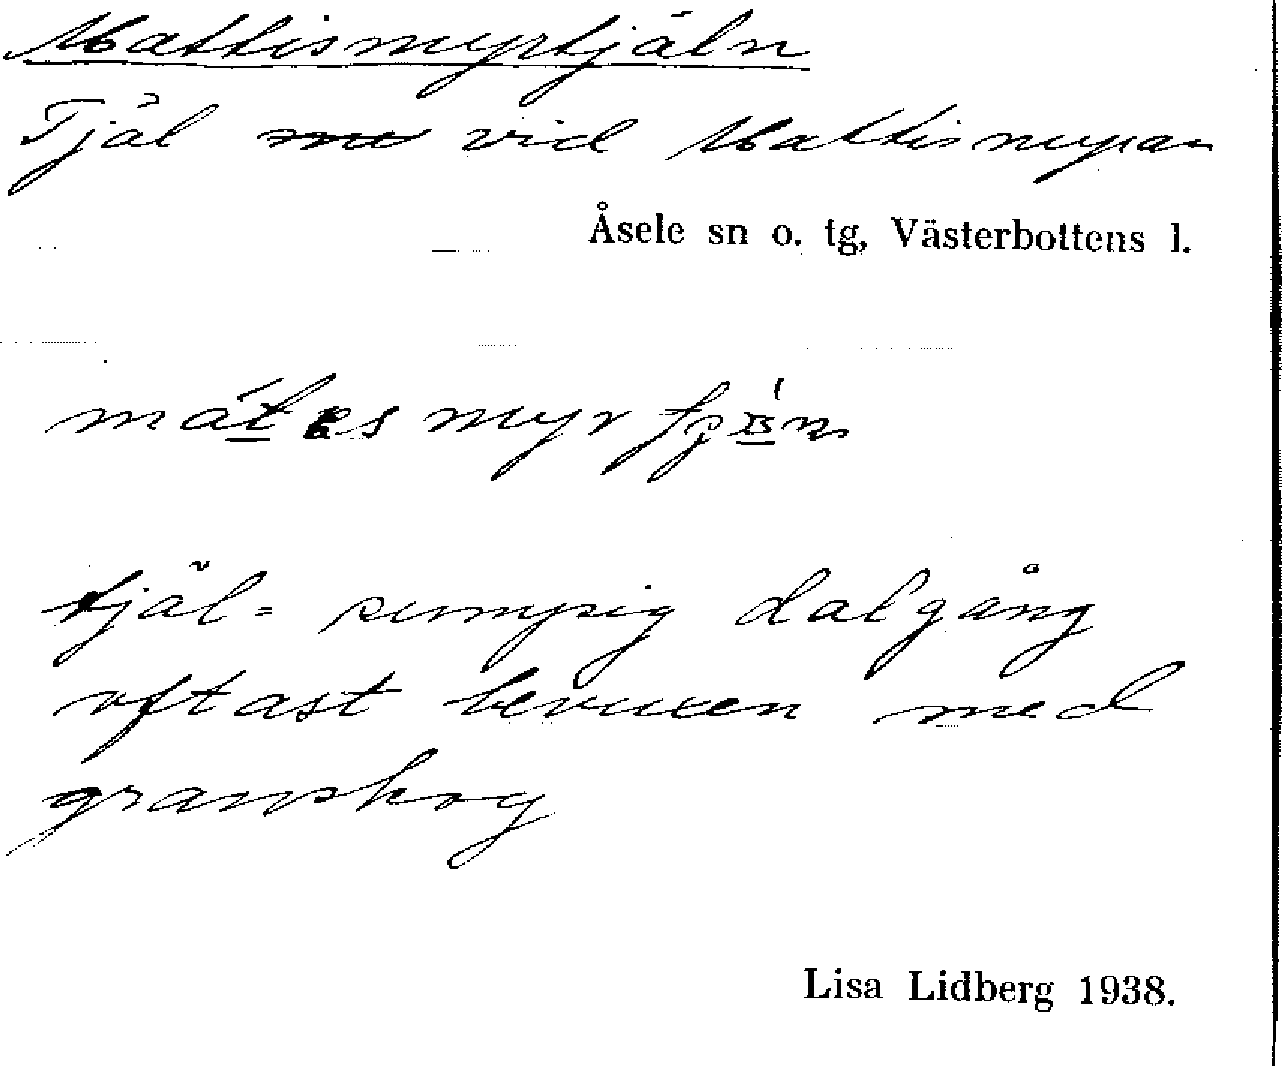 Mattismyrtjäln
Tjäl vid Mattismyran
Åsele sn o. tg, Västerbottens l.
tjäl = sumpig dalgång
oftast bevuxen med
granskog
Lisa Lidberg 1938.